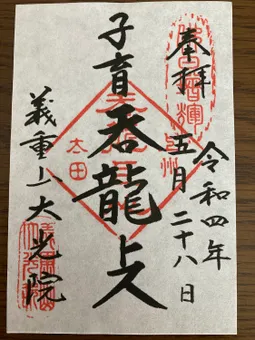 奉拝
令和四年
五月二十八日
子育呑龍上人
義重山大光院
太田